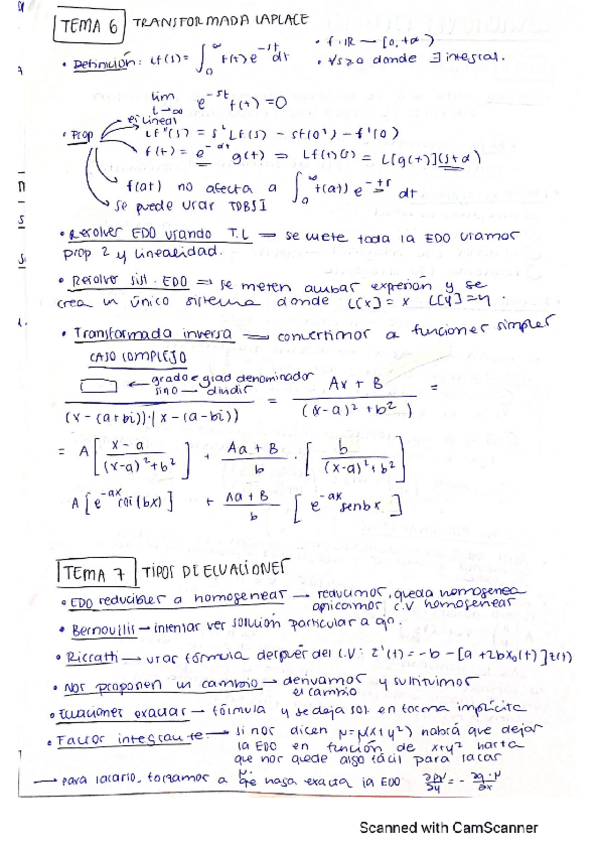 TEMA 6 TRANSFORMADA LAPLACE
• Definición: Lf(s) = ∫₀^∞ f(t) e^{-st} dt
• f: IR — [0,+∞)
• ∀s≥0 donde ∃ integral.
lim t→∞ e^{-st} f(t) = 0
• Prop
es lineal
Lf''(s) = s² Lf(s) - sf(0) - f'(0)
f(t) = e^{-αt} g(t) ⇒ Lf(t)(s) = L[g(t)](s+α)
f(at) no afecta a ∫₀^∞ f(at) e^{-ts} dt
se puede usar TDBSI
• Resolver EDO usando T.L ⇒ se mete toda la EDO usamos
prop 2 y linealidad.
• Resolver sist. EDO ⇒ se meten ambas expresión y se
crea un único sistema donde L[x] = x L[y] = y.
• Transformada inversa ⇒ convertimos a funciones simples
CASO COMPLEJO
← grado < grad denominador
sino — dividir
(x-(a+bi))·(x-(a-bi)) = Ax + B / (x-a)² + b² =
= A [ x-a / (x-a)²+b² ] + Aa + B / b · [ b / (x-a)²+b² ]
A [ e^{-ax} cos(bx) ] + Aa + B / b [ e^{-ax} sen bx ]
TEMA 7 TIPOS DE ECUACIONES
• EDO reducibles a homogeneas → reducimos, queda homogenea
aplicamos c.v homogeneas
• Bernoullis — intentar ver solución particular a ojo.
• Riccatti — usar fórmula después del C.V: z'(t) = -b - [a + 2bx₀(t)] z(t)
• Nos proponen un cambio → derivamos y sustituimos
el cambio
• Ecuaciones exactas → fórmula y se deja sol en forma implícita
• Factor integrante → si nos dicen μ = μ(x+y²) habrá que dejar
la EDO en función de x+y² hasta
que nos quede algo fácil para sacar
→ para sacarlo, forzamos a que μ haga exacta la EDO ∂pμ/∂y = - ∂q·μ/∂x
Scanned with CamScanner